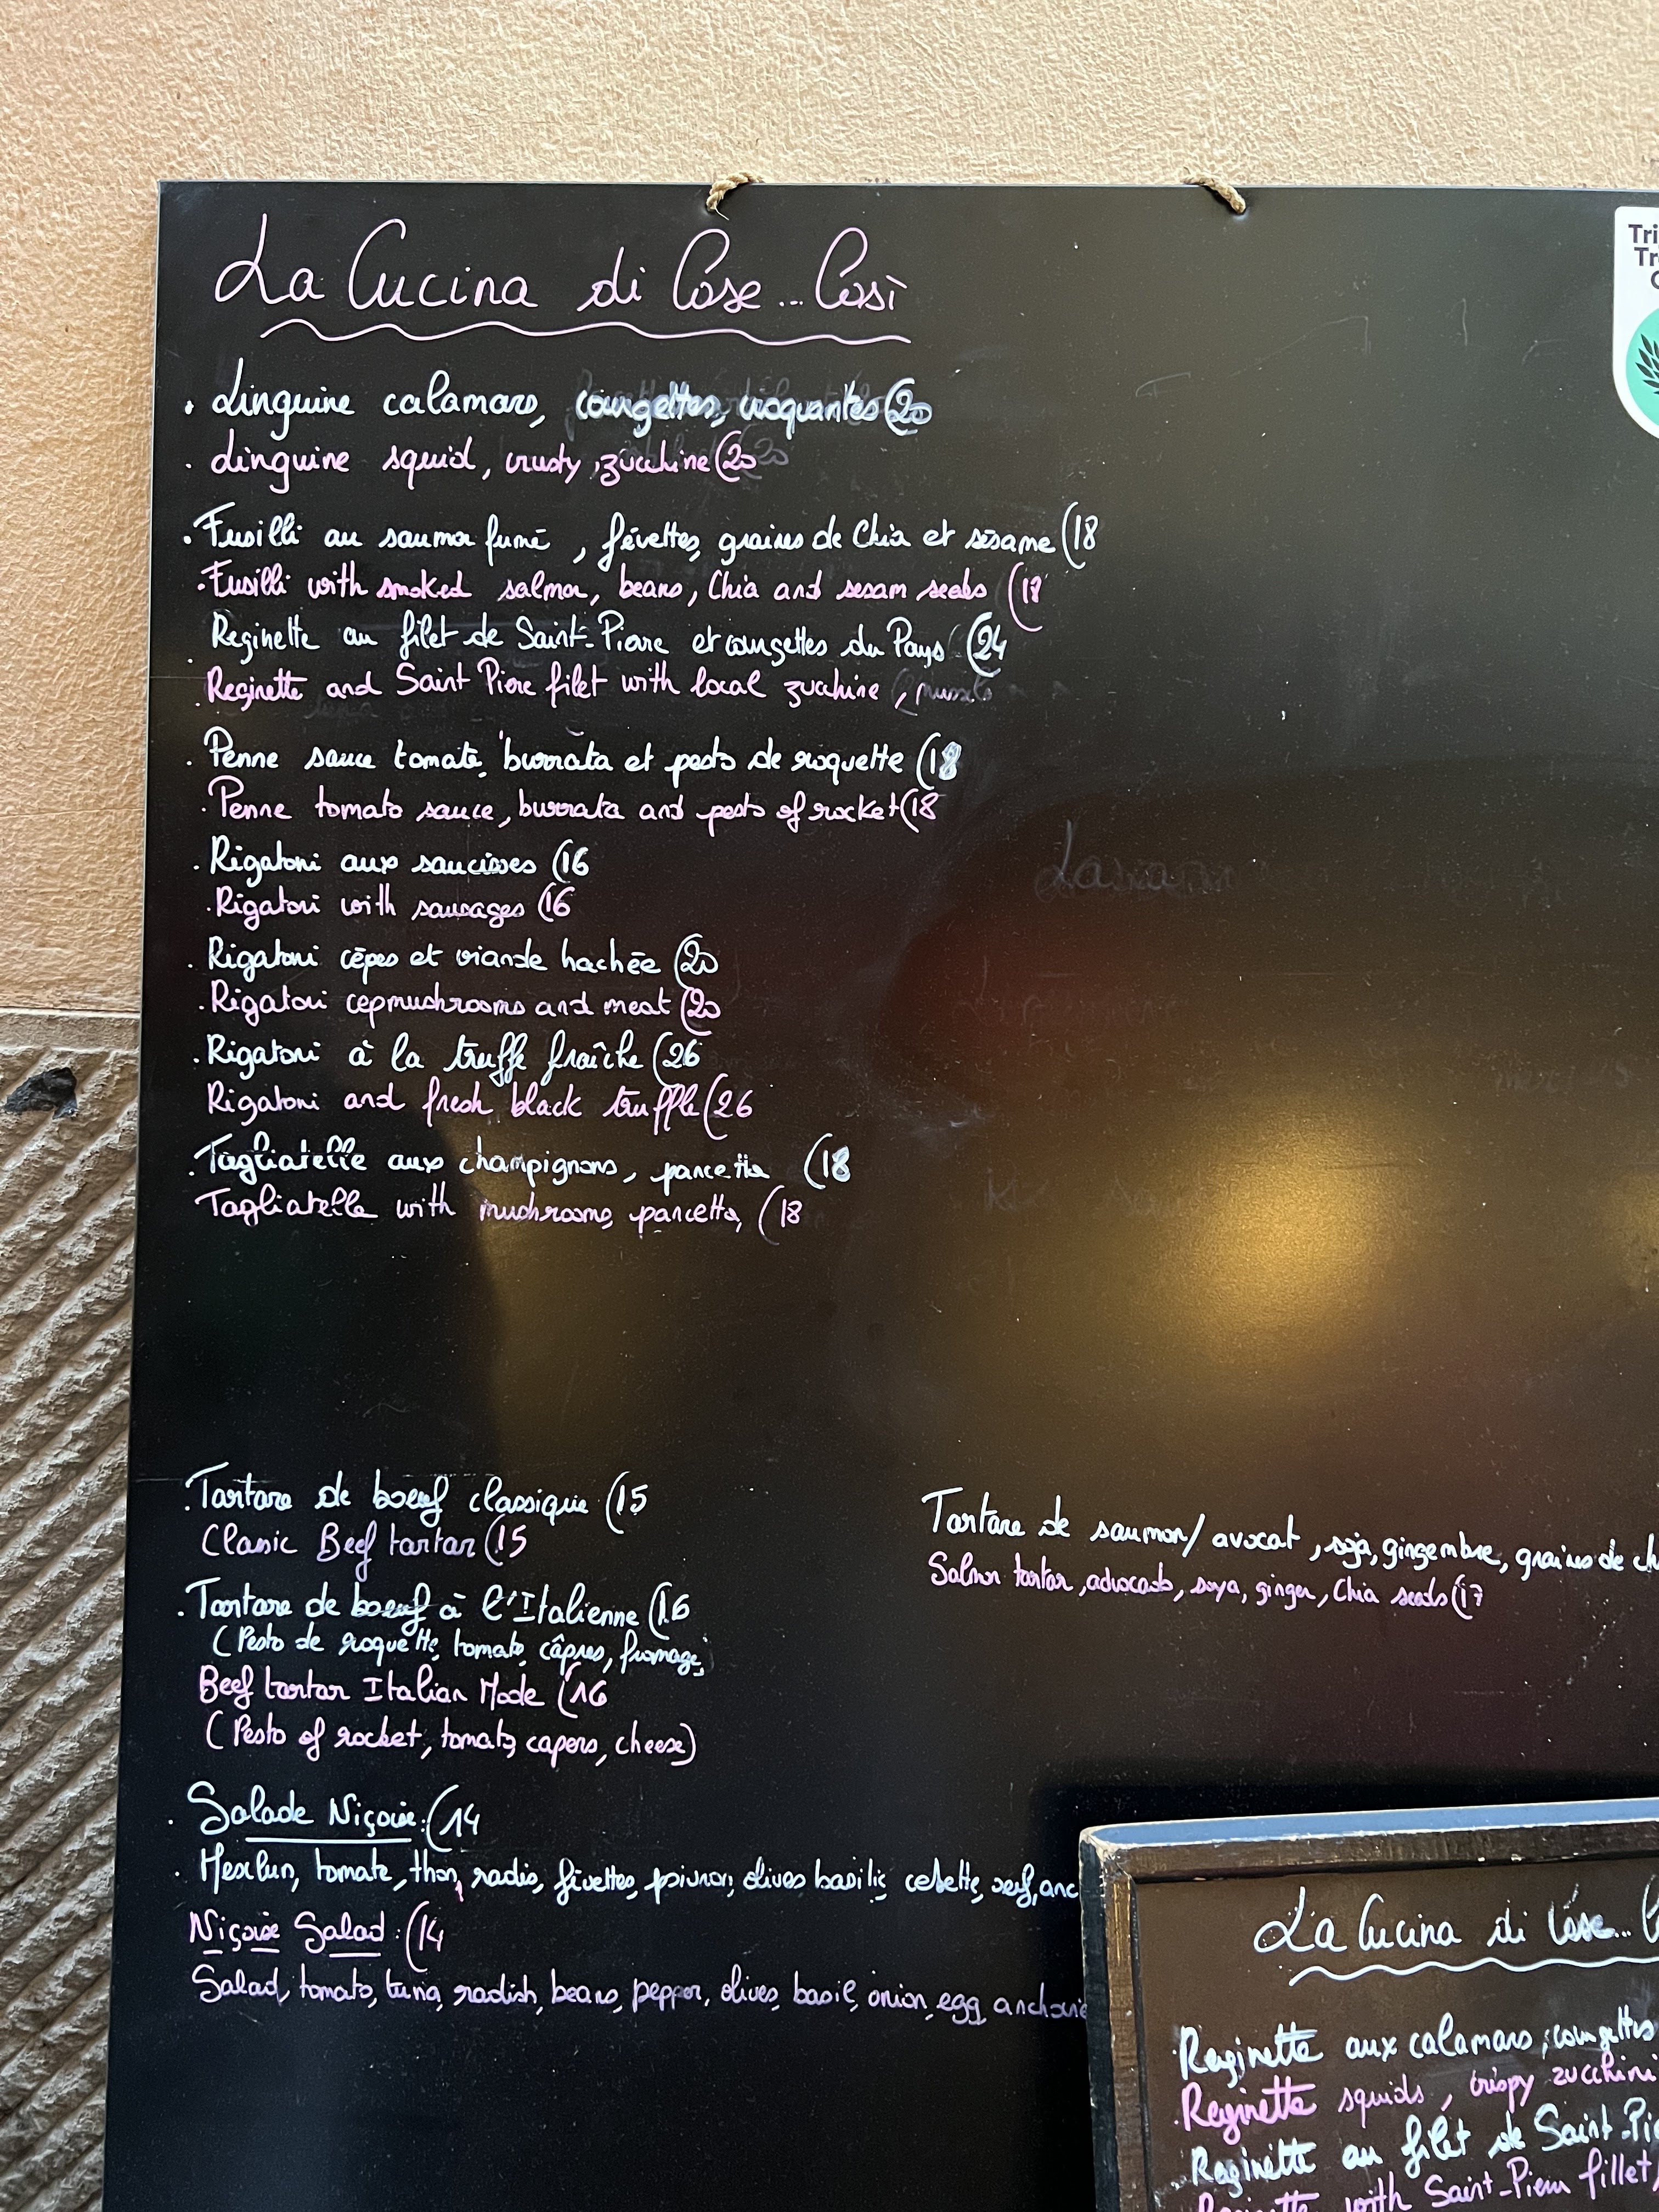 La Cucina di Cose... Così
. Linguine calamars, courgettes, croquantes (20
. Linguine squid, crusty zucchine (20
. Fusilli au saumon fumé, févettes, graines de Chia et sésame (18
. Fusilli with smoked salmon, beans, Chia and sesam seeds (18
. Reginette au filet de Saint-Pierre et courgettes du Pays (24
. Reginette and Saint Pierre filet with local zucchine,
. Penne sauce tomate, burrata et pesto de roquette (18
. Penne tomato sauce, burrata and pesto of rocket (18
. Rigatoni aux saucisses (16
. Rigatoni with sausages (16
. Rigatoni cèpes et viande hachée (20
. Rigatoni cepmushrooms and meat (20
. Rigatoni à la truffe fraîche (26
Rigatoni and fresh black truffle (26
. Tagliatelle aux champignons, pancetta (18
Tagliatelle with mushrooms, pancetta, (18
. Tartare de boeuf classique (15
Classic Beef tartar (15
. Tartare de boeuf à l'Italienne (16
(Pesto de roquette, tomate, câpres, fromage,
Beef tartar Italian Mode (16
(Pesto of rocket, tomato, capers, cheese)
Tartare de saumon/avocat, soja, gingembre, graines de ch
Salmon tartar, advocado, soya, ginger, Chia seeds (17
. Salade Niçoise: (14
. Mesclun, tomate, thon, radis, févettes, poivron, olives basilic cebette, oeuf, anc
Niçoise Salad: (14
Salad, tomato, tuna, radish, beans, pepper, olives, basil, onion, egg, anchovie
La Cucina di Cose...
. Reginette aux calamars, courgettes
. Reginette squids, crispy zucchini
. Reginette au filet de Saint-Pie
Reginette with Saint-Pierre fillet